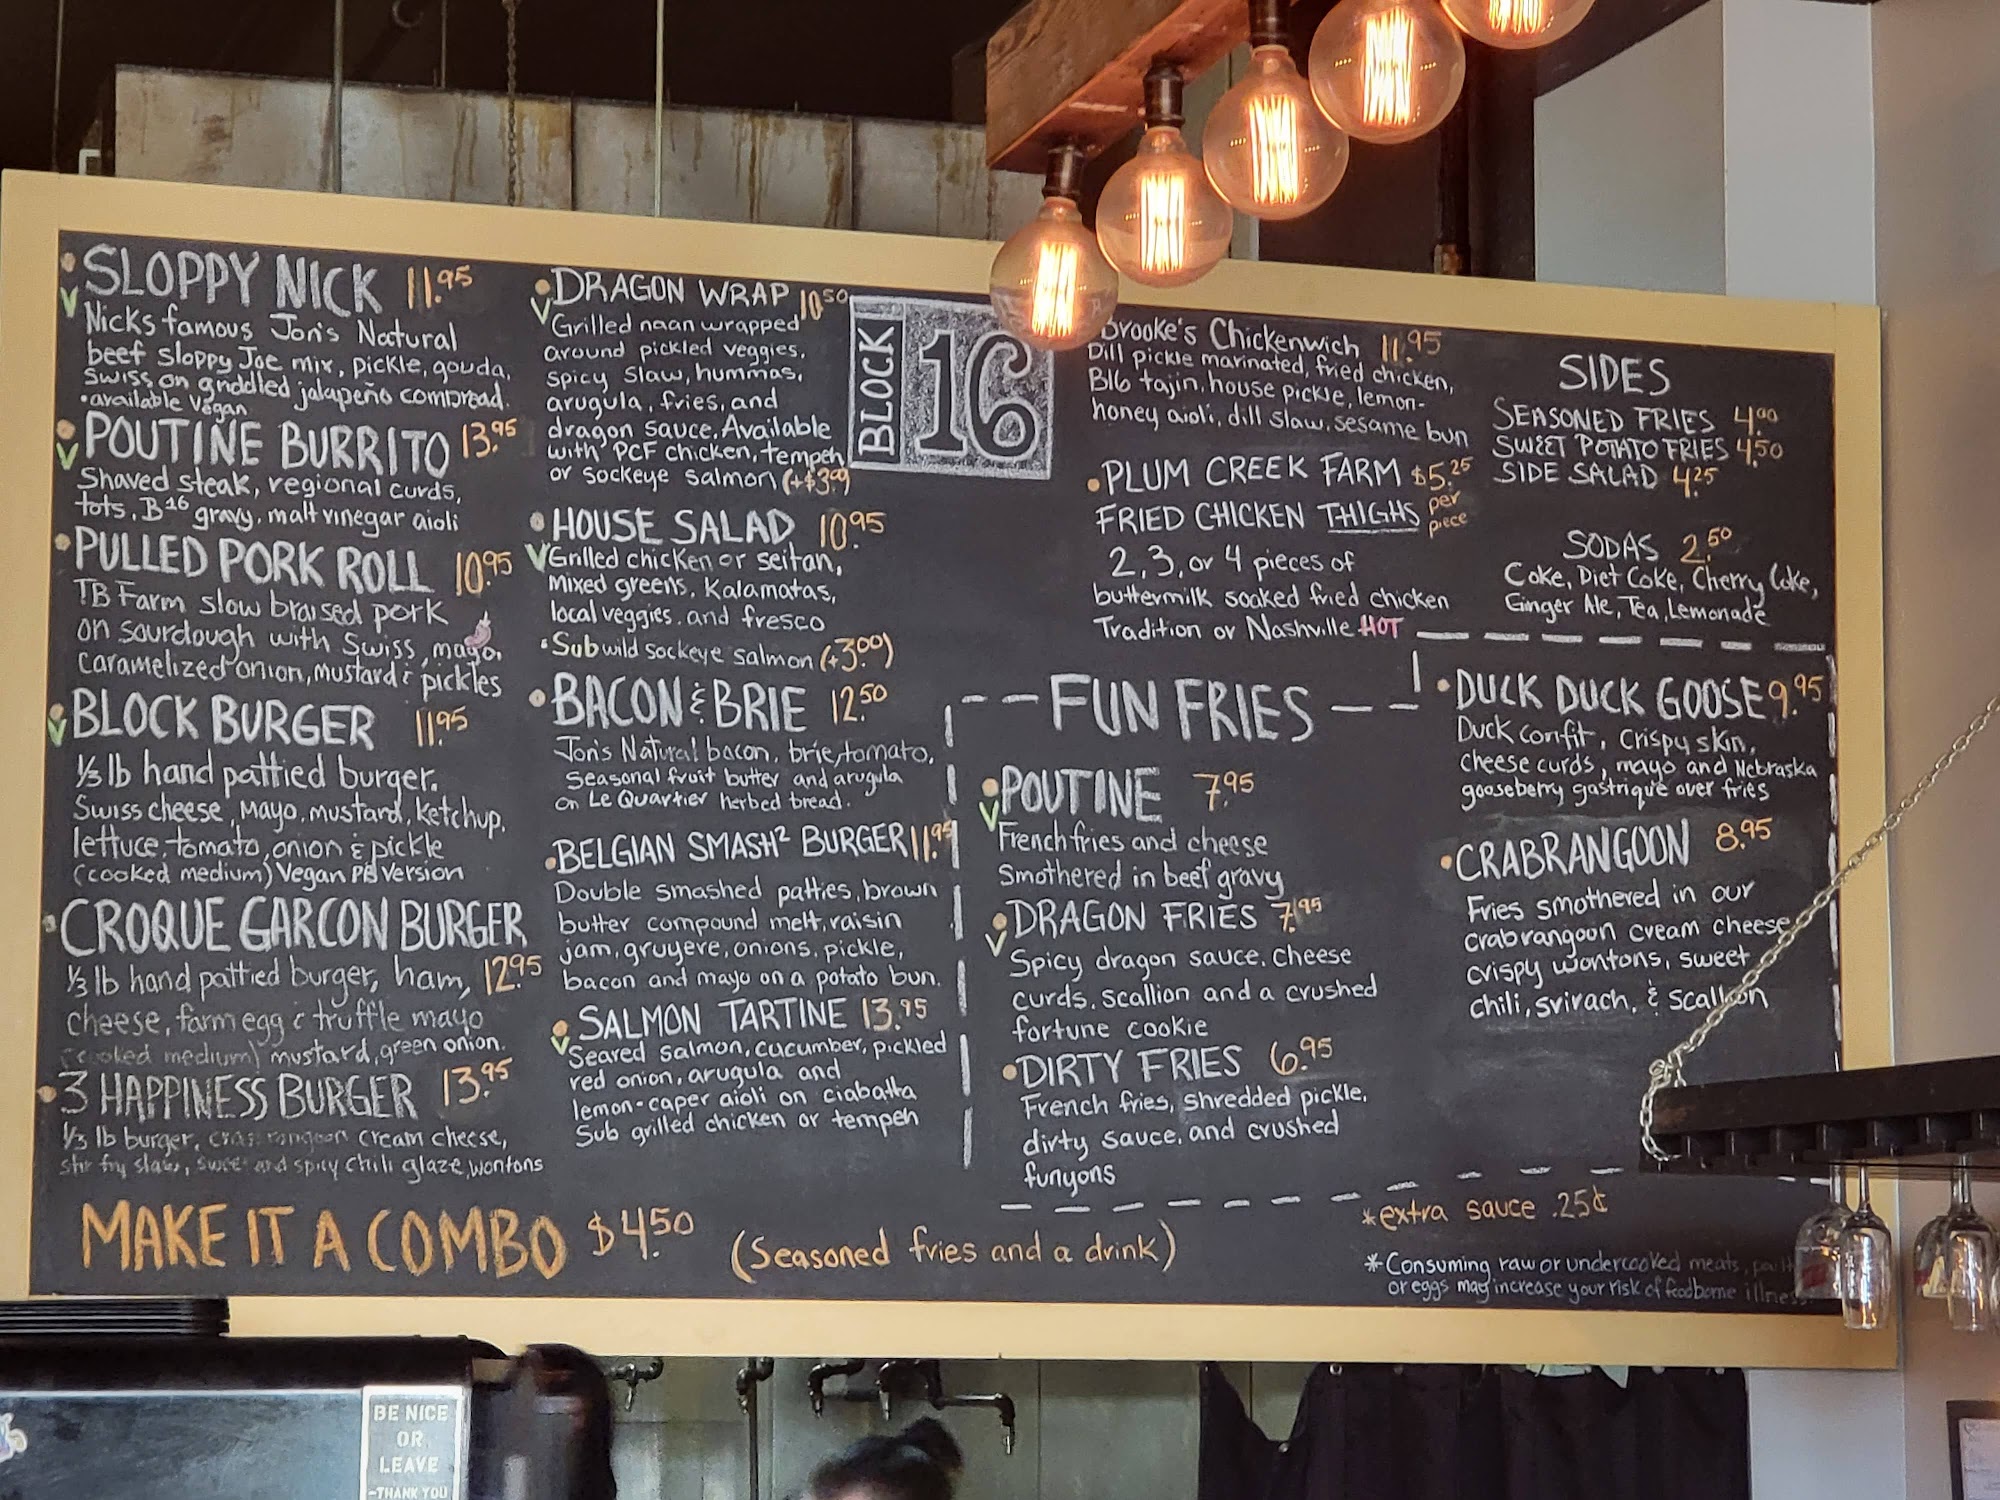 SLOPPY NICK 11.95
V Nicks famous Jon's Natural
beef sloppy Joe mix, pickle, gouda,
Swiss on griddled jalapeño cornbread.
•available Vegan
POUTINE BURRITO 13.95
V Shaved steak, regional curds,
tots, B16 gravy, malt vinegar aioli
PULLED PORK ROLL 10.95
TB Farm slow braised pork
on sourdough with Swiss, mayo,
Caramelized onion, mustard & pickles
BLOCK BURGER 11.95
V 1/3 lb hand pattied burger.
Swiss cheese, Mayo, mustard, ketchup,
lettuce, tomato, onion & pickle
(cooked medium) Vegan PB Version
CROQUE GARCON BURGER
1/3 lb hand pattied burger, ham, 12.95
cheese, farm egg & truffle mayo
(cooked medium) mustard, green onion.
3 HAPPINESS BURGER 13.95
1/3 lb burger, crabrangoon cream cheese,
stir fry slaw, sweet and spicy chili glaze, wontons
DRAGON WRAP 10.50
V Grilled naan wrapped
around pickled veggies,
spicy slaw, hummas,
arugula, fries, and
dragon sauce. Available
with PCF chicken, tempeh
or sockeye salmon (+$3.00)
HOUSE SALAD 10.95
V Grilled chicken or seitan,
mixed greens, Kalamatas,
local veggies, and fresco
•Sub wild sockeye salmon (+3.00)
BACON & BRIE 12.50
Jon's Natural bacon, brie, tomato,
Seasonal fruit butter and arugula
on Le Quartier herbed bread.
BELGIAN SMASH² BURGER 11.95
Double smashed patties, brown
butter compound melt, raisin
jam, gruyere, onions, pickle,
bacon and mayo on a potato bun.
SALMON TARTINE 13.95
V Seared salmon, cucumber, pickled
red onion, arugula and
lemon-caper aioli on ciabatta
Sub grilled chicken or tempeh
BLOCK 16
Brooke's Chickenwich 11.95
Dill pickle marinated, fried chicken,
B16 tajin, house pickle, lemon-
honey aioli, dill slaw, sesame bun
PLUM CREEK FARM $5.25
FRIED CHICKEN THIGHS per piece
2, 3, or 4 pieces of
buttermilk soaked fried chicken
Tradition or Nashville HOT
SIDES
SEASONED FRIES 4.00
SWEET POTATO FRIES 4.50
SIDE SALAD 4.25
SODAS 2.50
Coke, Diet Coke, Cherry Coke,
Ginger Ale, Tea, Lemonade
FUN FRIES
POUTINE 7.95
V French fries and cheese
Smothered in beef gravy
DRAGON FRIES 7.95
V Spicy dragon sauce, cheese
curds, scallion and a crushed
fortune cookie
DIRTY FRIES 6.95
French fries, shredded pickle,
dirty sauce, and crushed
funyons
DUCK DUCK GOOSE 9.95
Duck confit, crispy skin,
cheese curds, mayo and Nebraska
gooseberry gastrique over fries
CRABRANGOON 8.95
Fries smothered in our
Crabrangoon cream cheese
crispy wontons, sweet
chili, srirach, & scallion
MAKE IT A COMBO $4.50 (Seasoned fries and a drink)
*extra sauce .25¢
*Consuming raw or undercooked meats,
or eggs may increase your risk of foodborne illness.
BE NICE
OR
LEAVE
-THANK YOU